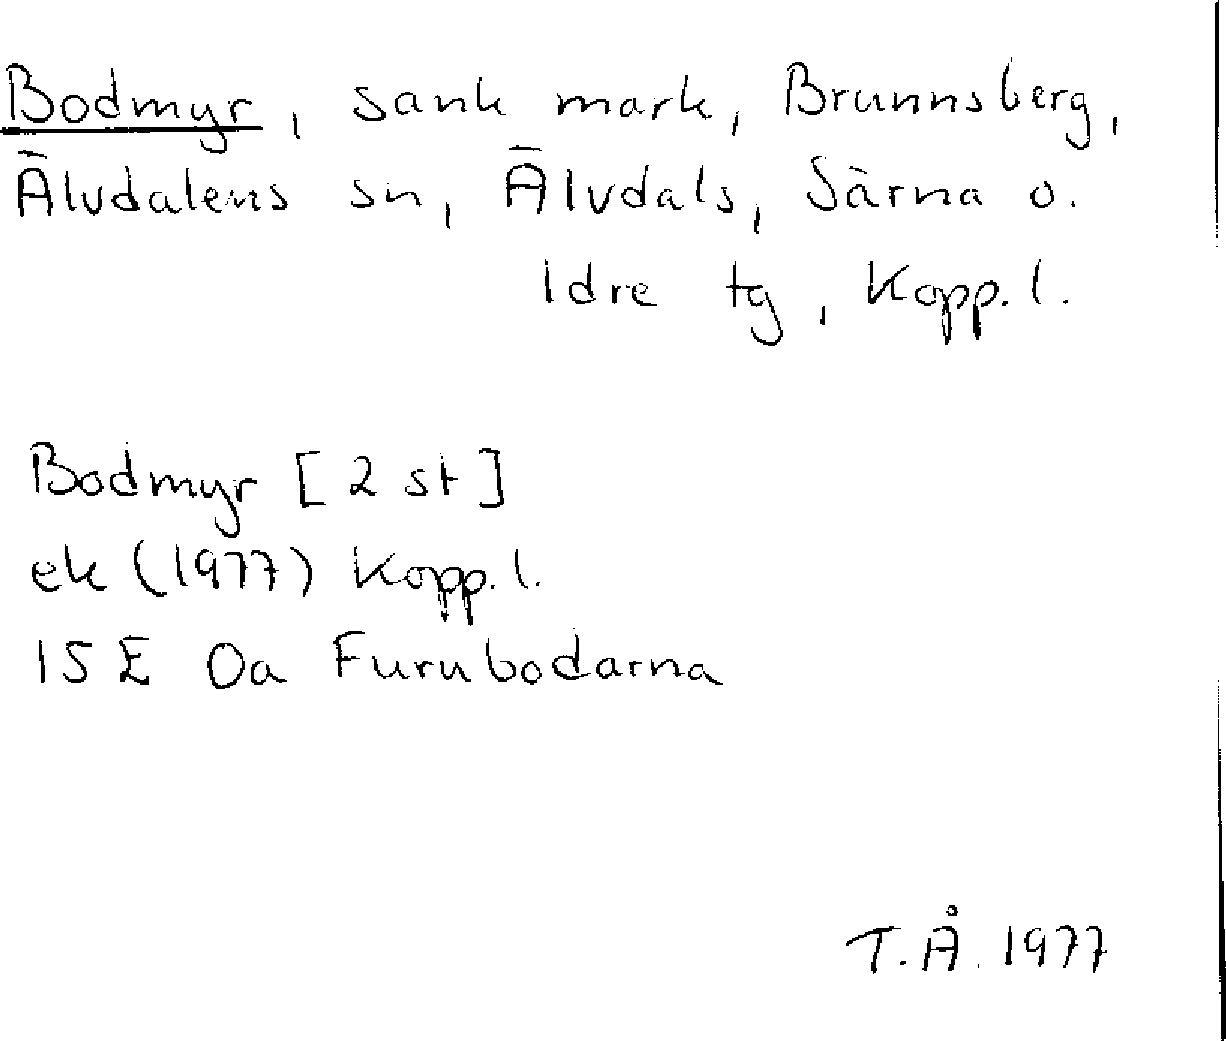 Bodmyr, sank mark, Brunnsberg,
Älvdalens sn, Älvdals, Särna o.
Idre tg, Kopp. l.
Bodmyr [2 st]
ek (1977) Kopp. l.
15 E 0a Furubodarna
T.Å. 1977